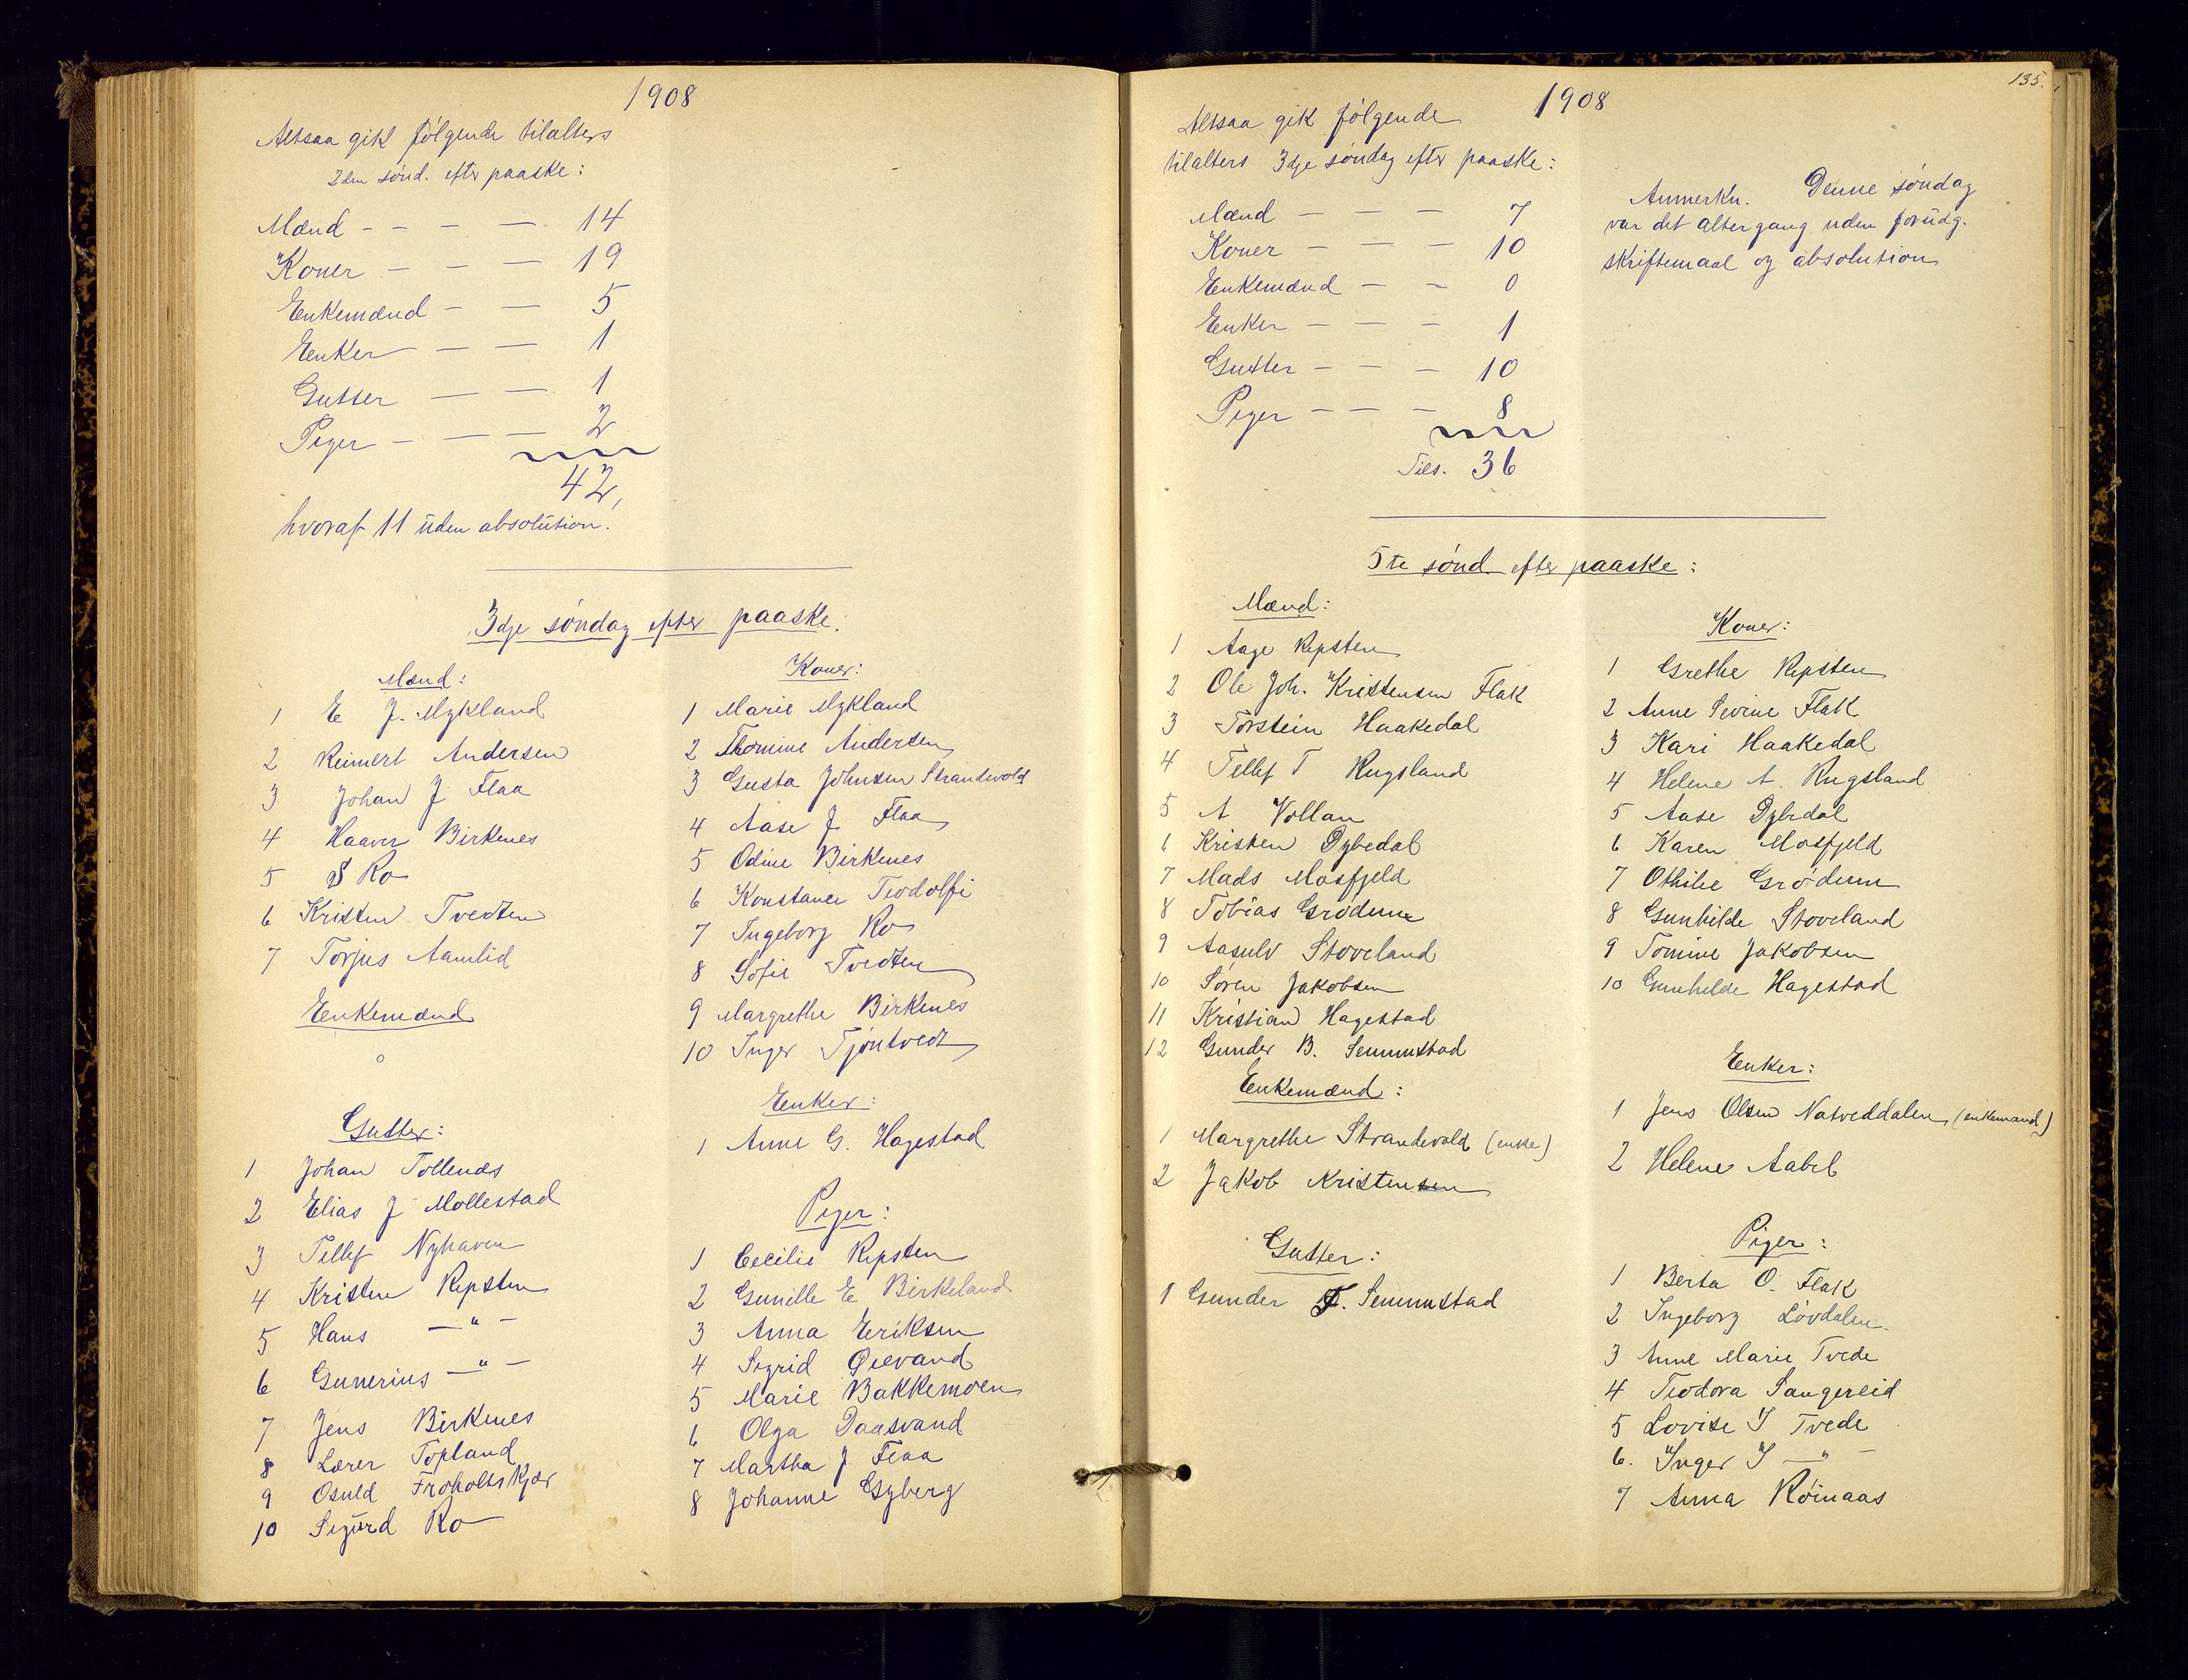 1908
Altsaa gik følgende tilalters
2den sønd. efter paaske:
Mænd - - - - 14
Koner - - - 19
Enkemænd - - 5
Enker - - 1
Gutter - - 1
Piger - - - 2
42,
hvoraf 11 uden absolution.
3dje søndag efter paaske.
Mænd:
1 E J. Mykland
2 Reimert Andersen
3 Johan J Flaa
4 Haaver Birkenes
5 S Ro
6 Kristen Tvedten
7 Torjus Aamlid
Enkemænd
0
Gutter:
1 Johan Tollenæs
2 Elias J Mollestad
3 Tellef Nyhaven
4 Kristen Repsten
5 Hans —"—
6 Gunerius —"—
7 Jens Birkenes
8 Lærer Topland
9 Osuld Froholtskjær
10 Sigurd Ro
Koner:
1 Marie Mykland
2 Thomine Andersen
3 Gusta Johnsen Strandevold
4 Aase J Flaa
5 Odine Birkenes
6 Konstance Teodolfi
7 Ingeborg Ro
8 Sofie Tvedten
9 Margrethe Birkenes
10 Inger Tjøntvedt
Enker:
1 Anne G. Hagestad
Piger:
1 Cecilie Repsten
2 Gunille E Birkeland
3 Anna Eriksen
4 Sigrid Øievand
5 Marie Bakkemoen
6 Olga Daasvand
7 Martha J Flaa
8 Johanne Gyberg
135.
1908
Altsaa gik følgende
tilalters 3dje søndag efter paaske:
Mænd - - - 7
Koner - - - 10
Enkemænd - - 0
Enker - - - 1
Gutter - - - 10
Piger - - - 8
Tils. 36
Anmerkn. Denne søndag
var det altergang uden forudg.
skriftemaal og absolution
5te sønd. efter paaske:
Mænd:
1 Aage Repsten
2 Ole Joh. Kristensen Flak
3 Torstein Haakedal
4 Tellef T Rugsland
5 A Vollan
6 Kristen Dybedal
7 Mads Mosfjeld
8 Tobias Grødum
9 Aasulv Stoveland
10 Søren Jakobsen
11 Kristian Hagestad
12 Gunder B. Senumstad
Enkemænd:
1 Margrethe Strandevold (enke)
2 Jakob Kristensen
Gutter:
1 Gunder F. Senumstad
Koner:
1 Grethe Repsten
2 Anne Sevine Flak
3 Kari Haakedal
4 Helene A. Rugsland
5 Aase Dybdal
6 Karen Mosfjeld
7 Othilie Grødum
8 Gunhilde Stoveland
9 Tomine Jakobsen
10 Gunhilde Hagestad
Enker:
1 Jens Olsen Natveddalen (enkemand)
2 Helene Aabel
Piger:
1 Berta O. Flak
2 Ingeborg Løvdalen
3 Anne Marie Tvede
4 Teodora Sangereid
5 Lovise I Tvede
6. Inger I —"—
7 Anna Røinaas